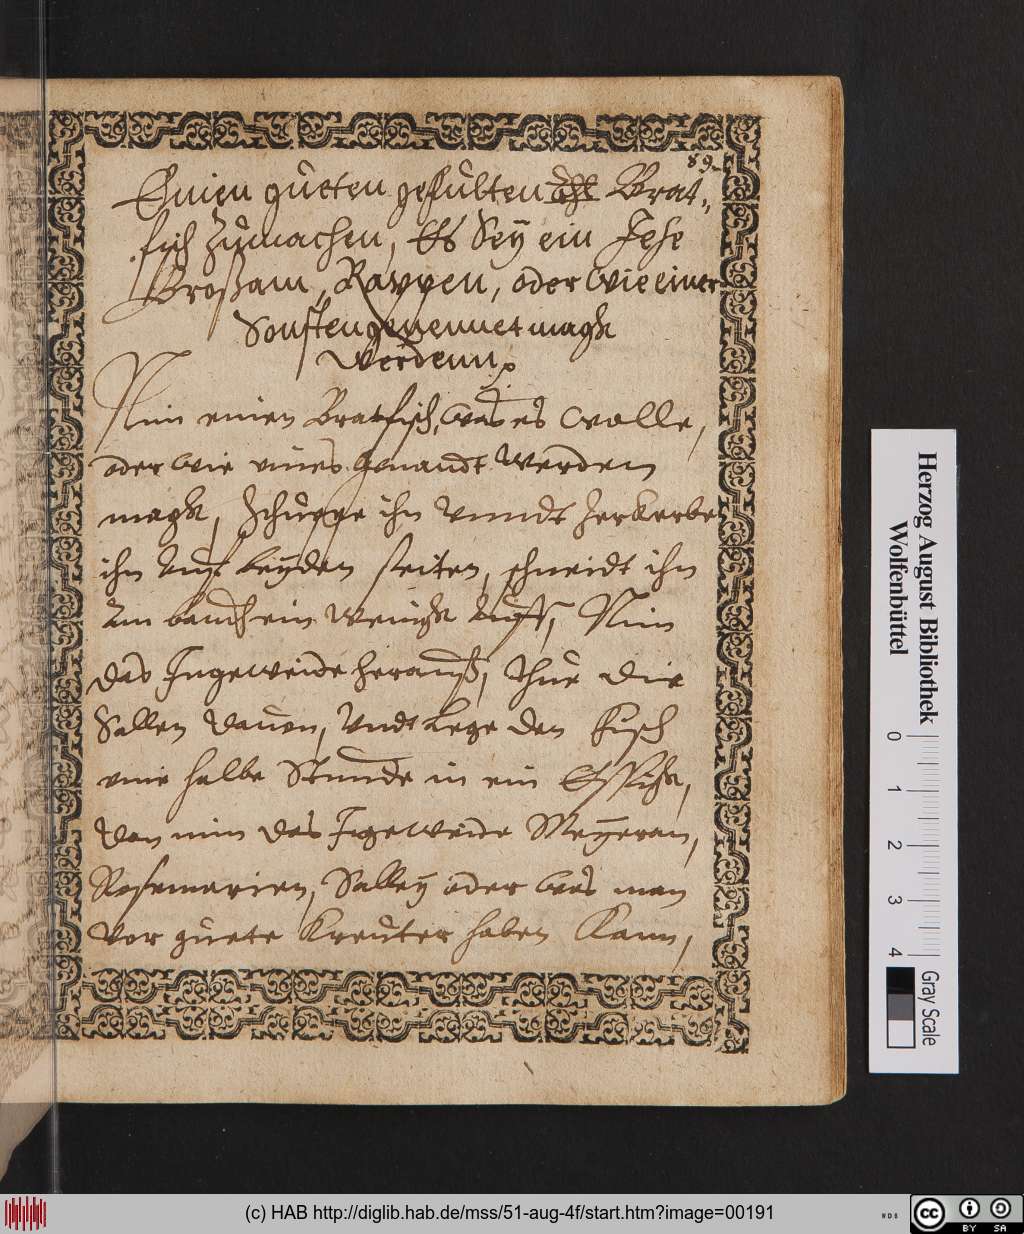 89.
Einen gueten gefulten Brat-
fisch Zumachen, Es Sey ein Jese
Broßam, Rappen, oder wie einer
Sonsten genennet magk
werdenn
Nim einen Bratfisch, was es wolle,
oder wie eines genandt werden
magk, Schuppe ihn vnndt zerkerbe
ihn auf beyden seiten, schneidt ihn
am bauch ein wenigk auff, Nim
das Ingeweide herauß, thue die
Gallen dauon, Vndt lege den fisch
eine halbe Stunde in ein Essigk,
dan nim das Ingeweide Meyeran,
Rosemarien, Salbey oder was man
vor guete Kreuter haben Kann,
Herzog August Bibliothek
Wolfenbüttel
0 1 2 3 4
Gray Scale
(c) HAB http://diglib.hab.de/mss/51-aug-4f/start.htm?image=00191
WDB
cc BY SA